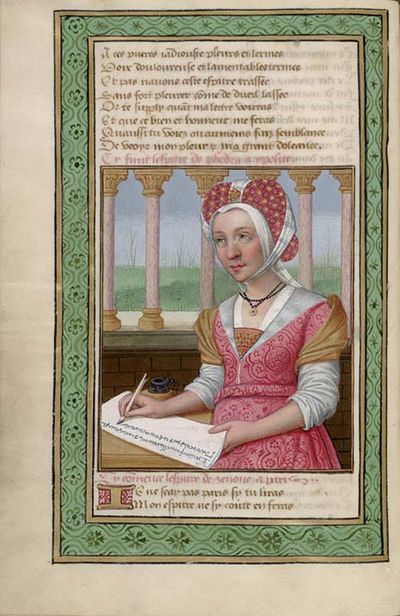 A ces prieres iadiouste pleurs et lermes
Voix douloureuse et lamentables termes
Et pas nauons ceste espitre trassee
Sans fort pleurer come de dueil lassee
Or te supply quāt ma lectre voirras
Et que ce bien et honneur me feras
Quaussi tu voies ou aumeins faiz semblance
De veoyr mon pleur et ma grant doleance.
Cy finit lespitre de phedra a ypolite
Cy cōmence lespitre de zenone a paris
Ie ne scay pas paris sy tu liras
Mon espitre ne sy conte en feras